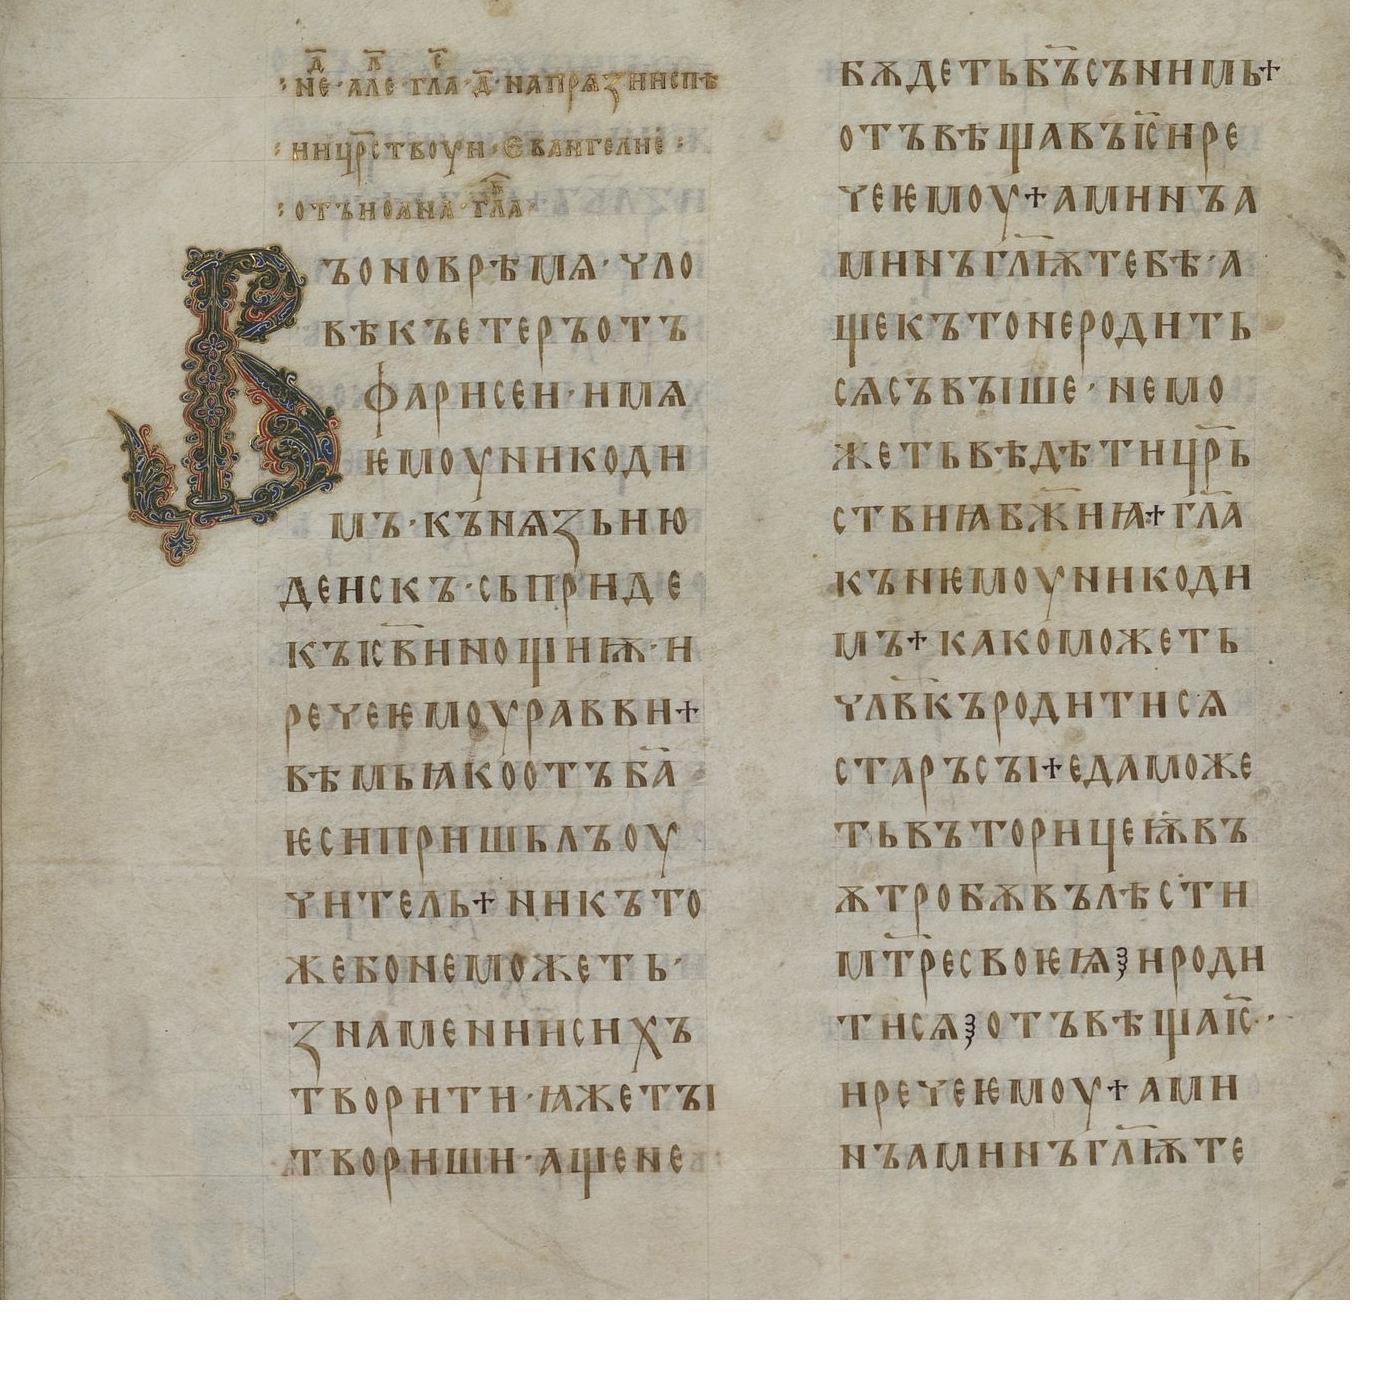 ·НЕ·АЛЕ·ГЛА·Д҃·НАПРѦЗННСПѢ
ННЦР҃СТВОУН·ЕВАНГЕЛНЕ:
:ОТЪНОАНА·ГЛА
ВЪОНОВРѢМѦ·ЧЛО
ВѢКЪЕТЕРЪОТЪ
ФАРИСЕИ·ИМѦ
ѤМОУНИКОДИ
МЪ·КЪНѦЗЬИЮ
ДЕИСКЪ·СЬПРИДЕ
КЪІС҃ВИНОЩИѬ·И
РЕЧЕѤМОУРАВВИ+
ВѢМЬꙖКООТЪБА҃
ѤСИПРИШЬЛЪОУ
ЧИТЕЛЬ+НИКЪТО
ЖЕБОНЕМОЖЕТЬ·
ЗНАМЕНИИСИХЪ
ТВОРИТИ·ꙖЖЕТЪІ
ТВОРИШИ·АЩЕНЕ
БѪДЕТЬБ҃ЪСЪНИМЬ+
ОТЪВѢЩАВЪІС҃ИРЕ
ЧЕѤМОУ+АМИНЪА
МИНЪГЛ҃ѬТЕБѢ·А
ЩЕКЪТОНЕРОДИТЬ
СѦСЪВЪІШЕ·НЕМО
ЖЕТЬВѢДѢТИЦР҃Ь
СТВИꙖБЖ҃ИꙖ+ГЛ҃А
КЪНѤМОУНИКОДИ
МЪ+КАКОМОЖЕТЬ
ЧЛВ҃КЪРОДИТИСѦ
СТАРЪСЪІ+ЕДАМОЖЕ
ТЬВЪТОРИЦЕѬВЪ
ѪТРОБѪВЪЛѢСТИ
МТ҃РЕСВОѤꙖ·ИРОДИ
ТИСѦ·ОТЪВѢЩАІС҃·
ИРЕЧЕѤМОУ+АМИ
НЪАМИНЪГЛ҃ѬТЕ